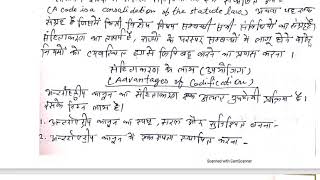 (A code is a consolidation of the statute law) अथवा यह एक
संग्रह है जिसमें किसी विशेष विषय सम्बन्धी सभी विधियों का संग्रह
संहिताकरण का अर्थ है, राज्यों के परस्पर सम्बन्धों में लागू होने वाले
नियमों को व्यवस्थित ढंग से लिपिबद्ध करने का प्रयास करना ।
संहिताकरण के लाभ (उपयोगिता)
(Advantages of Codification)
अन्तर्राष्ट्रीय कानून का संहिताकरण एक अत्यन्त उपयोगी प्रक्रिया है।
इसके निम्न लाभ हैं।
1. अन्तर्राष्ट्रीय कानून को स्पष्ट, सरल और सुनिश्चित बनाना -
2. अन्तर्राष्ट्रीय कानून में एकरूपता स्थापित करना -
Scanned with CamScanner